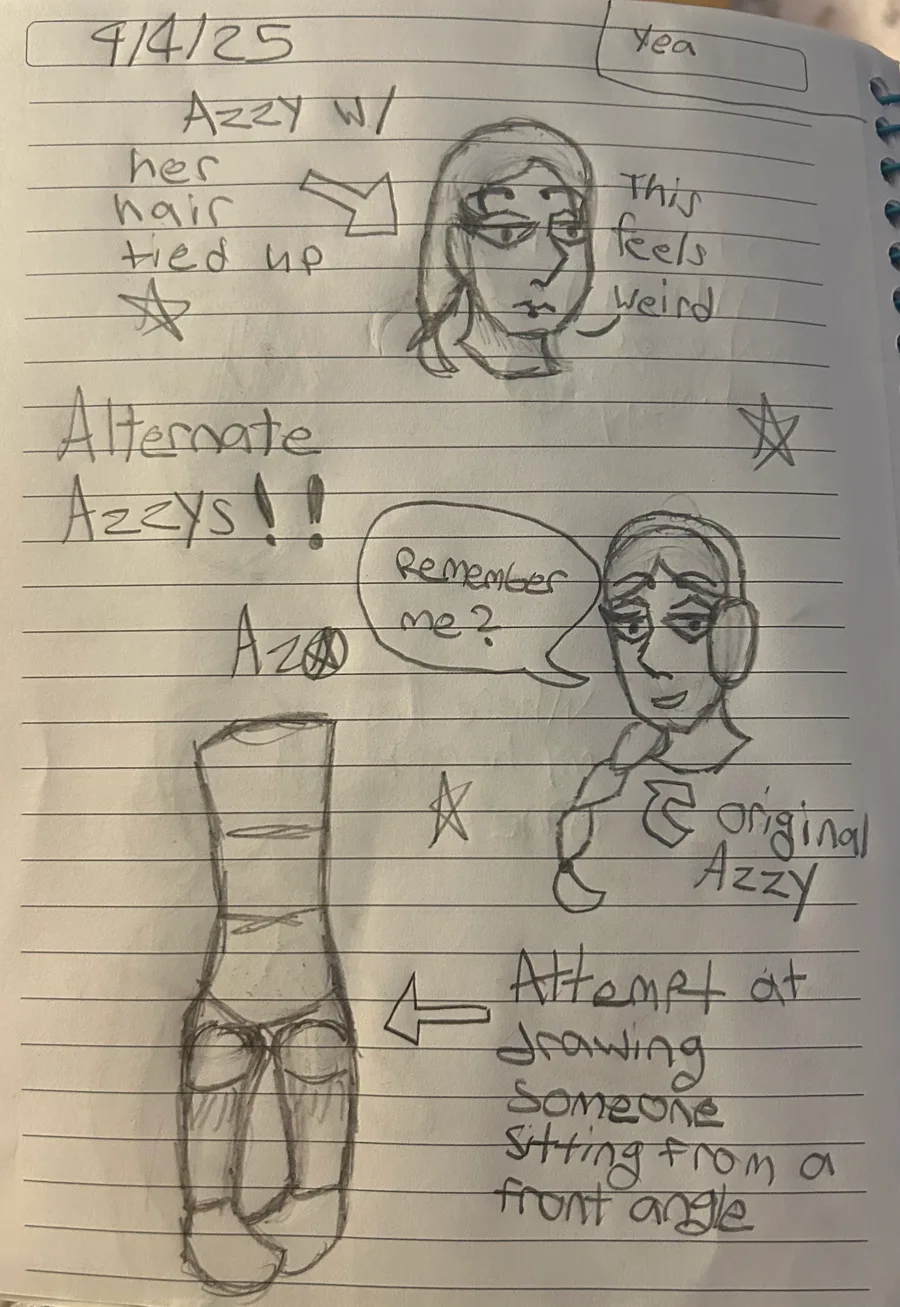 4/4/25
Yea
AZZY W/
her
hair
tied up
This
feels
weird
Alternate
Azzys!!
Remember
me?
Az
original
Azzy
Attempt at
drawing
someone
sitting from a
front angle